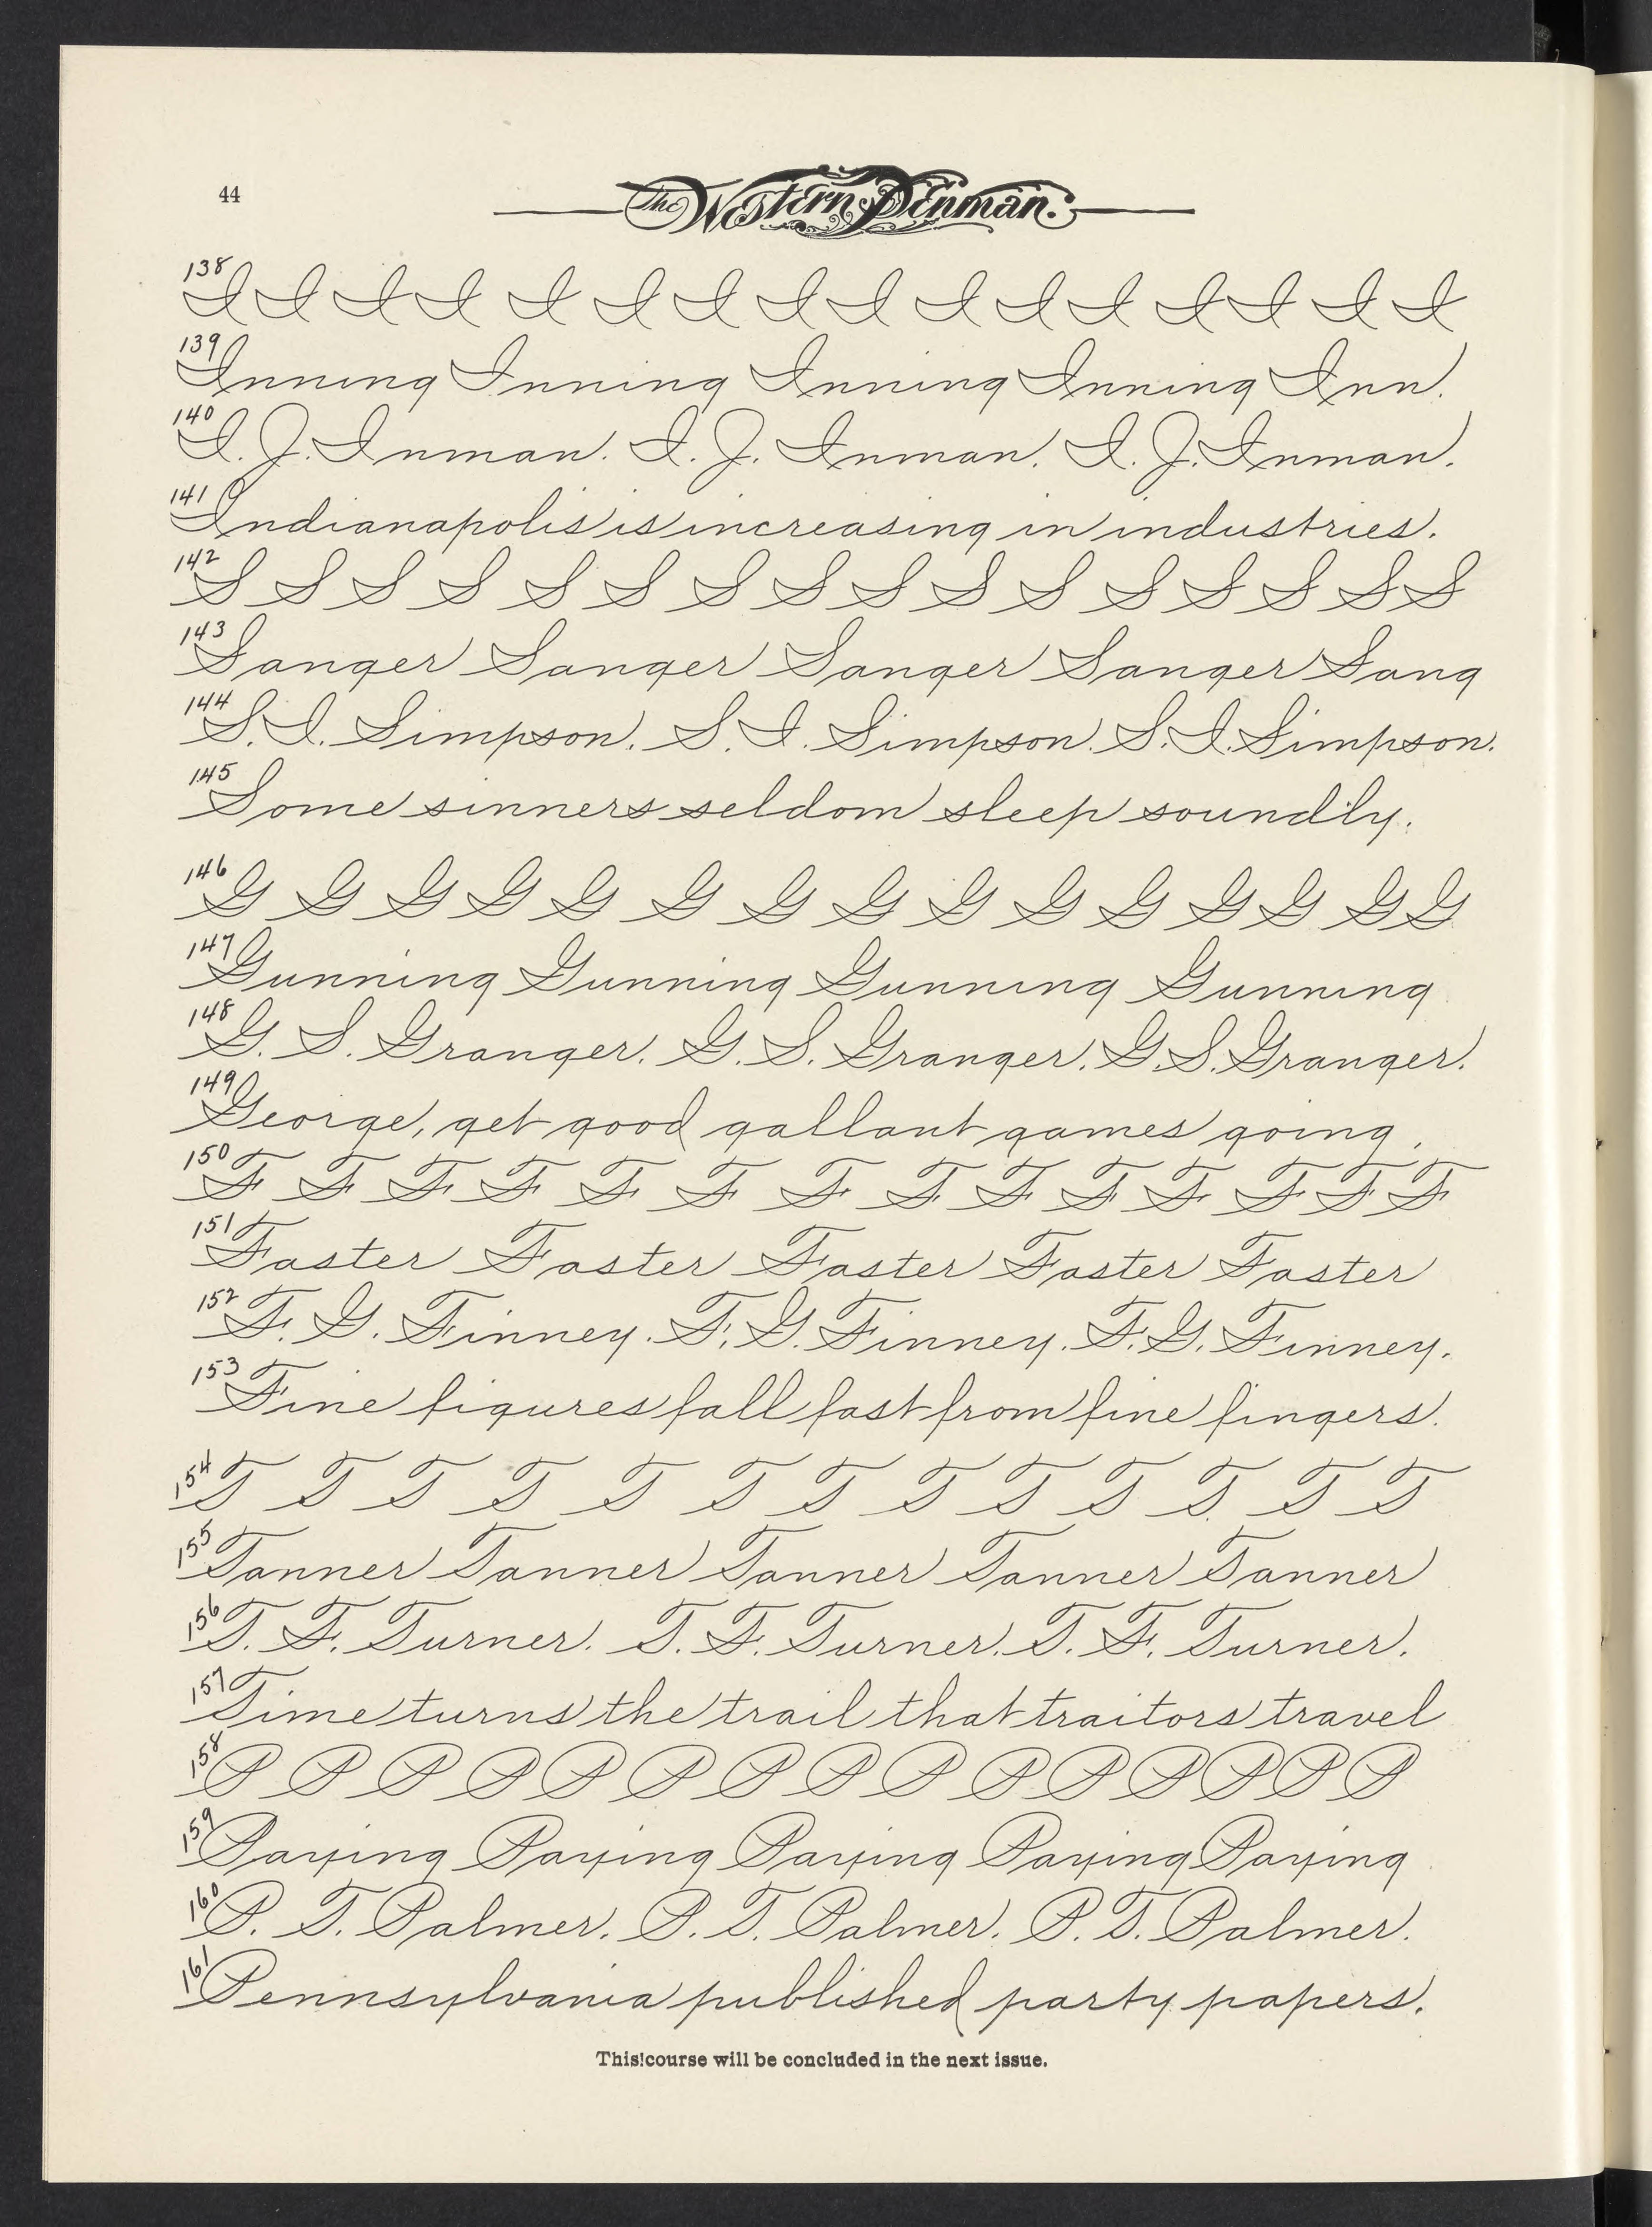 44
The Western Penman.
138 I I I I I I I I I I I I I I I I
139 Inning Inning Inning Inning Inn.
140 I. J. Inman. I. J. Inman. I. J. Inman.
141 Indianapolis is increasing in industries.
142 S S S S S S S S S S S S S S S S
143 Sanger Sanger Sanger Sanger Sang
144 S. I. Simpson. S. I. Simpson. S. I. Simpson.
145 Some sinners seldom sleep soundly.
146 G G G G G G G G G G G G G G G
147 Gunning Gunning Gunning Gunning
148 G. S. Granger. G. S. Granger. G. S. Granger.
149 George, get good gallant games going.
150 F F F F F F F F F F F F F F
151 Faster Faster Faster Faster Faster
152 F. G. Finney. F. G. Finney. F. G. Finney.
153 Fine figures fall fast from fine fingers.
154 T T T T T T T T T T T T T
155 Tanner Tanner Tanner Tanner Tanner
156 T. F. Turner. T. F. Turner. T. F. Turner.
157 Time turns the trail that traitors travel
158 P P P P P P P P P P P P P P P
159 Paying Paying Paying Paying Paying
160 P. T. Palmer. P. T. Palmer. P. T. Palmer.
161 Pennsylvania published party papers.
This!course will be concluded in the next issue.